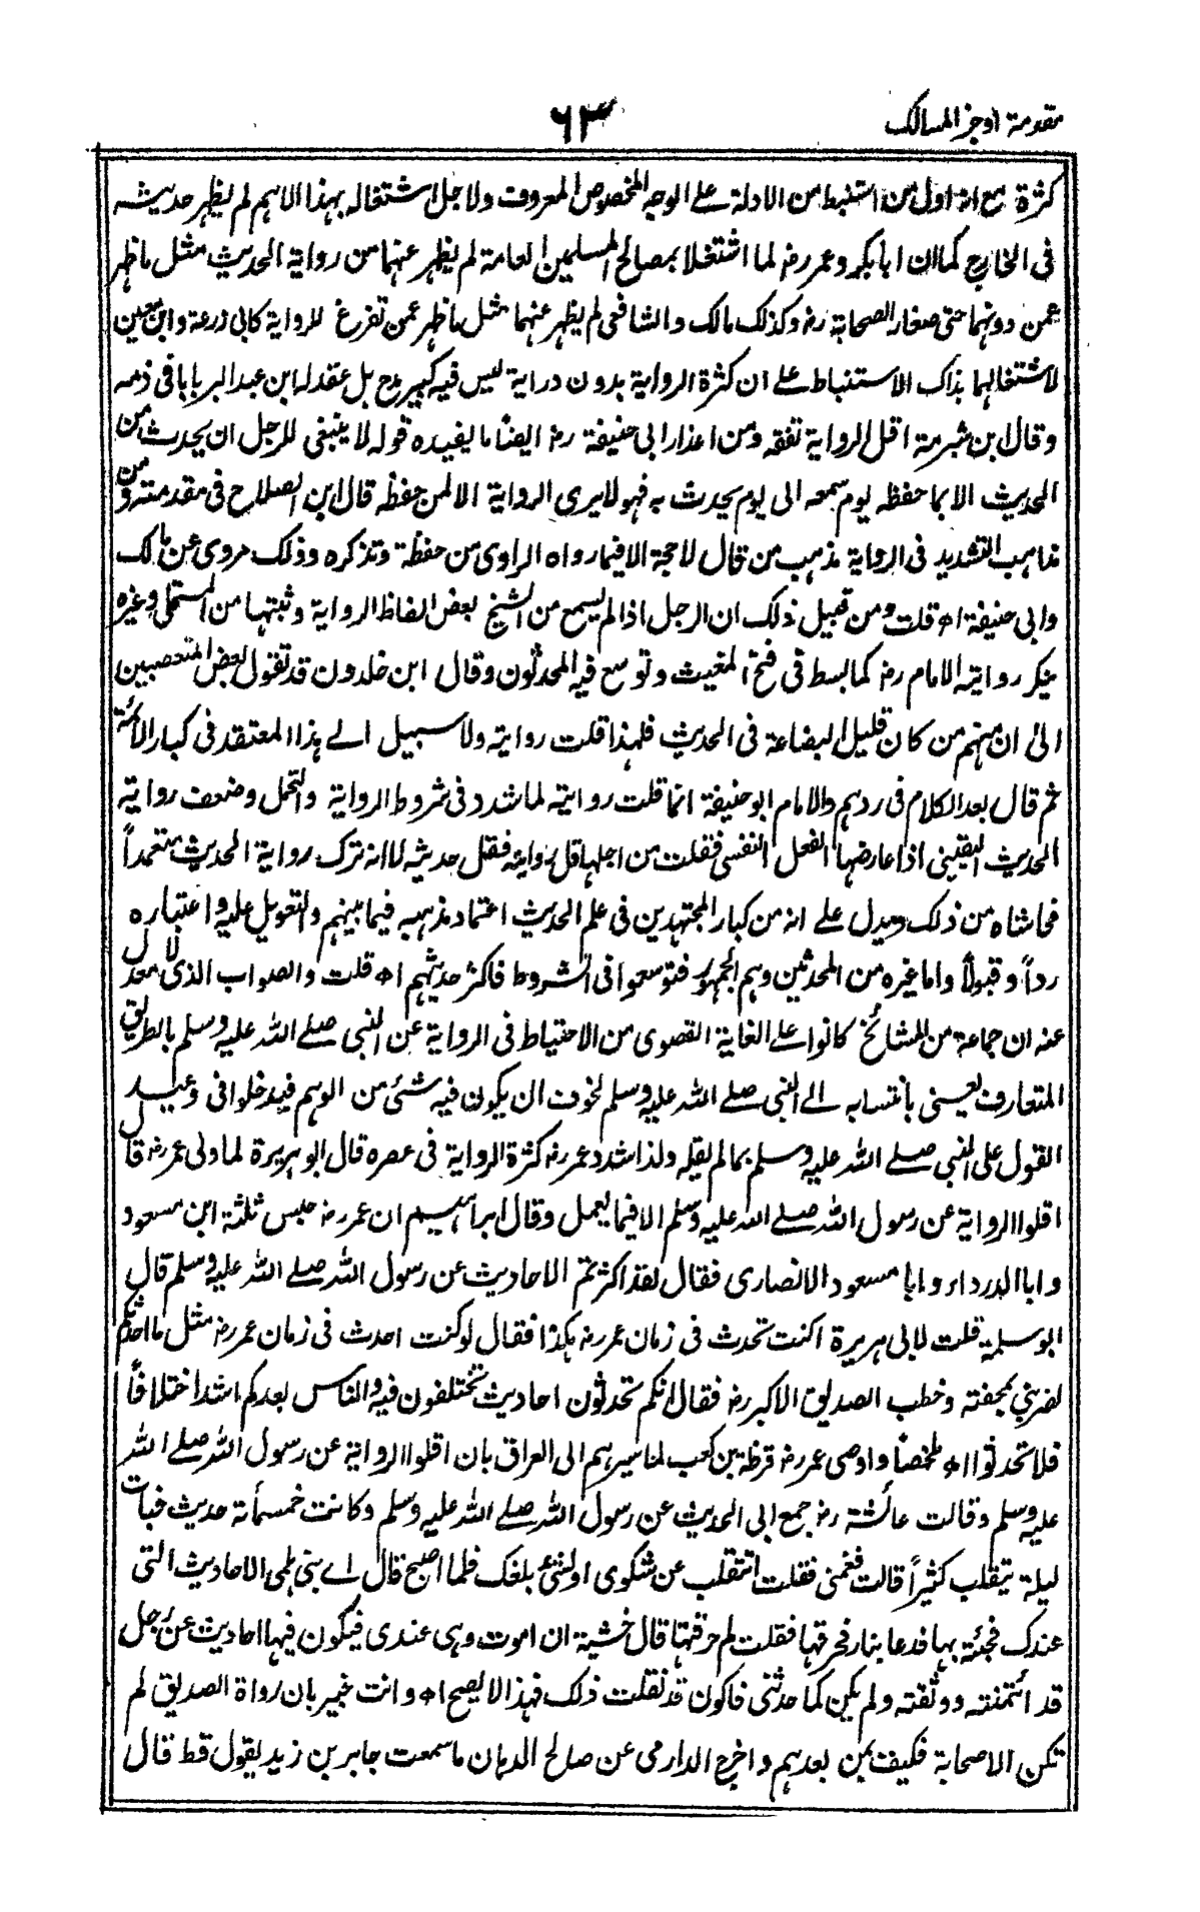 مقدمة اوجز المسالك
٦٣
كثرة مع انه اول من استنبط من الادلة على الوجه المخصوص المعروف ولاجل اشتغاله بهذا الاهم لم يظهر حديثه
فى الخارج كما ان ابا بكر وعمر رضـ لما اشتغلا بمصالح المسلمين العامة لم يظهر عنهما من رواية الحديث مثل ما ظهر
عمن دونهما حتى صغار الصحابة رضـ وكذلك مالك والشافعى لم يظهر عنهما مثل ما ظهر عمن تفرغ للرواية كابى زرعة وابن معين
لاشتغالهما بذاك الاستنباط على ان كثرة الرواية بدون دراية ليس فيه كبير مدح بل عقد له ابن عبد البر بابا فى ذمه
وقال ابن شبرمة اقل الرواية تفقه ومن اعذار ابى حنيفة رضـ ايضًا ما يفيده قوله لا ينبغى للرجل ان يحدث من
الحديث الا بما حفظه يوم سمعه الى يوم يحدث به فهو لا يرى الرواية الا لمن حفظ قال ابن الصلاح فى مقدمته ومن
مذاهب التشديد فى الرواية مذهب من قال لا حجة الا فيما رواه الراوى من حفظة وتذكره وذلك مروى عن مالك
وابى حنيفة اه قلت ومن قبيل ذلك ان الرجل اذا لم يسمع من الشيخ بعض الفاظ الرواية وثبتها من المستملى وغيره
ينكر روايته الامام رضـ كما بسط فى فتح المغيث وتوسع فيه المحدثون وقال ابن خلدون قد تقول بعض المتعصبين
الى ان منهم من كان قليل البضاعة فى الحديث فلهذا قلت روايته ولا سبيل الے هذا المعتقد فى كبار الائمة
ثم قال بعد الكلام فى ردهم والامام ابو حنيفة انما قلت روايته لما شدد فى شروط الرواية والتحمل وضعف رواية
الحديث اليقينى اذا عارضها الفعل النفسى فقلت من اجلها قل روايته فقل حديثه لا انه ترك رواية الحديث متعمداً
فحاشاه من ذلك ويدل على انه من كبار المجتهدين فى علم الحديث اعتماد مذهبه فيما بينهم والتعويل عليه واعتباره
رداً وقبولاً واما غيره من المحدثين وهم الجمهور فتوسعوا فى الشروط فاكثر حديثهم اه قلت والصواب الذى لا معدل
عنه ان جماعة من المشائخ كانوا على الغاية القصوى من الاحتياط فى الرواية عن النبى صلے الله عليه وسلم بالطريق
المتعارف يعينى بانتسابه الے النبى صلے الله عليه وسلم لخوف ان يكون فيه شئ من الوهم فيدخلوا فى وعيد
القول على النبى صلے الله عليه وسلم بما لم يقله ولذا شدد عمر رضـ كثرة الرواية فى عصره قال ابو هريرة لما ولى عمر رضـ قال
اقلوا الرواية عن رسول الله صلے الله عليه وسلم الا فيما يعمل وقال ابراهيم ان عمر رضـ حبس ثلثة ابن مسعود
وابا الدرداء وابا مسعود الانصارى فقال لقد اكثرتم الاحاديث عن رسول الله صلے الله عليه وسلم قال
ابو سلمة قلت لابى هريرة اكنت تحدث فى زمان عمر رضـ هكذا فقال لو كنت احدث فى زمان عمر رضـ مثل ما احدثكم
لضربنى بمخفقته وخطب الصديق الاكبر رضـ فقال انكم تحدثون احاديث تختلفون فيه والناس بعدكم اشد اختلافاً
فلا تحدثوا اه ملخصًا واوصى عمر رضـ قرظة بن كعب لما سيرهم الى العراق بان اقلوا الرواية عن رسول الله صلے الله
عليه وسلم وقالت عائشة رضـ جمع ابى الحديث عن رسول الله صلے الله عليه وسلم وكانت خمسمأة حديث فبات
ليلة يتقلب كثيراً قالت فغمنى فقلت أتتقلب عن شكوى او لشئ بلغك فلما اصبح قال اے بنى هلمى الاحاديث التى
عندك فجئته بها فدعا بنار فحرقها فقلت لم حرقتها قال خشية ان اموت وهى عندى فيكون فيها احاديث عن رجل
قد ائتمنته ووثقته ولم يكن كما حدثنى فاكون قد نقلت ذلك فهذا لا يصح اه وانت خبير بان رواة الصديق لم
تكن الا صحابة فكيف بمن بعدهم واخرج الدارمى عن صالح الدهان ما سمعت جابر بن زيد يقول قط قال